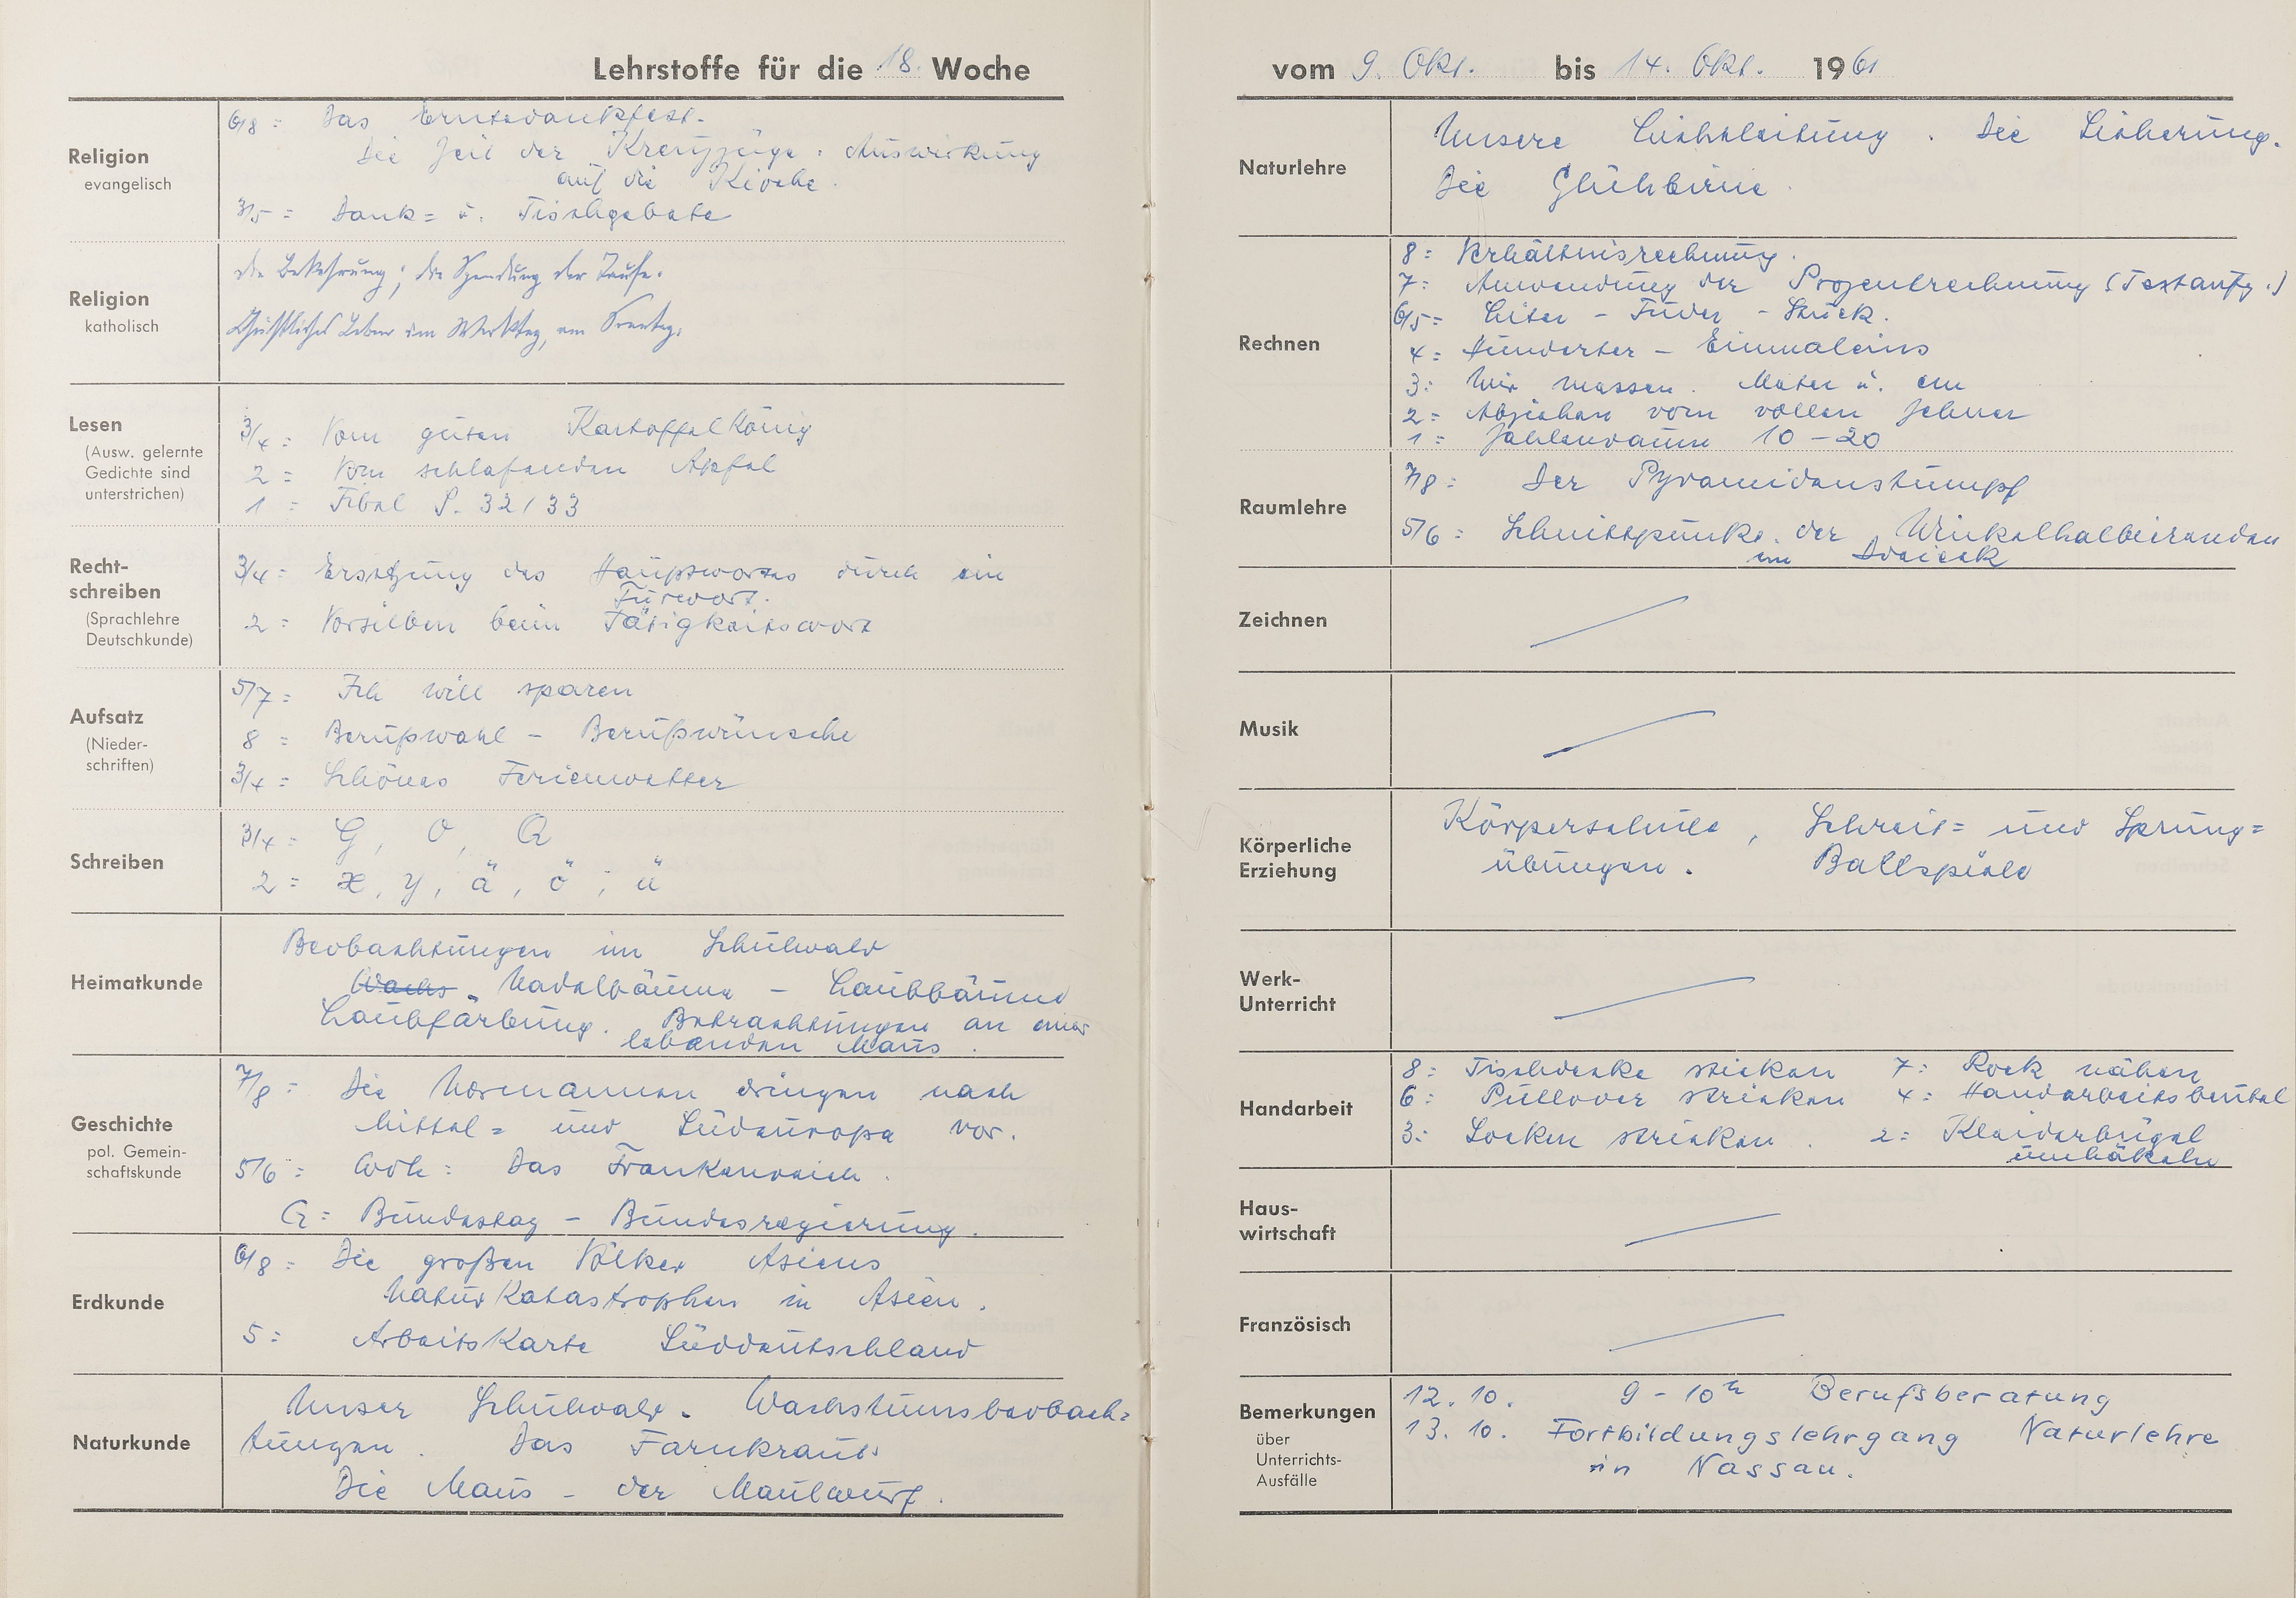 Lehrstoffe für die 18. Woche
Religion
evangelisch
6/8 = Das Erntedankfest.
Die Zeit der Kreuzzüge. Auswirkung
auf die Kirche.
3/5 = Dank= u. Tischgebete
Religion
katholisch
die Bekehrung; die Spendung der Taufe.
Christliches Leben am Werktag, am Sonntag.
Lesen
(Ausw. gelernte
Gedichte sind
unterstrichen)
3/4 = Vom guten Kartoffelkönig
2 = Vom schlafenden Apfel
1 = Fibel S. 32/33
Recht-
schreiben
(Sprachlehre
Deutschkunde)
3/4 = Ersetzung des Hauptwortes durch ein
Fürwort.
2 = Vorsilben beim Tätigkeitswort
Aufsatz
(Nieder-
schriften)
5/7 = Ich will sparen
8 = Berufswahl - Berufswünsche
3/4 = Schönes Ferienwetter
Schreiben
3/4 = G, O, Q
2 = x, y, ä, ö, ü
Heimatkunde
Beobachtungen im Schulwald
Wachs. Nadelbäume - Laubbäume
Laubfärbung. Betrachtungen an einer
lebenden Maus.
Geschichte
pol. Gemein-
schaftskunde
7/8 = Die Normannen dringen nach
Mittel= und Südeuropa vor.
5/6 = Wdh: Das Frankenreich.
G = Bundestag - Bundesregierung.
Erdkunde
6/8 = Die großen Völker Asiens
Naturkatastrophen in Asien.
5 = Arbeitskarte Süddeutschland
Naturkunde
Unser Schulwald. Wachstumsbeobach=
tungen. Das Farnkraut.
Die Maus - der Maulwurf.
vom 9. Okt. bis 14. Okt. 1961
Naturlehre
Unsere Lichtleitung. Die Sicherung.
Die Glühbirne.
Rechnen
8 = Verhältnisrechnung.
7 = Anwendung der Prozentrechnung (Textaufg.)
6/5 = Liter - Fuder - Stück.
4 = Hunderter - Einmaleins
3 = Wir messen. Meter u. cm
2 = Abziehen vom vollen Zehner
1 = Zahlenraum 10-20
Raumlehre
7/8 = Der Pyramidenstumpf
5/6 = Schnittpunkt der Winkelhalbierenden
im Dreieck
Zeichnen
Musik
Körperliche
Erziehung
Körperschule, Schreit= und Sprung=
übungen. Ballspiele
Werk-
Unterricht
Handarbeit
8 = Tischdecke sticken 7 = Rock nähen
6 = Pullover stricken 4 = Handarbeitsbeutel
3 = Socken stricken. 2 = Kleiderbügel
umhäkeln
Haus-
wirtschaft
Französisch
Bemerkungen
über
Unterrichts-
Ausfälle
12. 10. 9-10h Berufsberatung
13. 10. Fortbildungslehrgang Naturlehre
in Nassau.